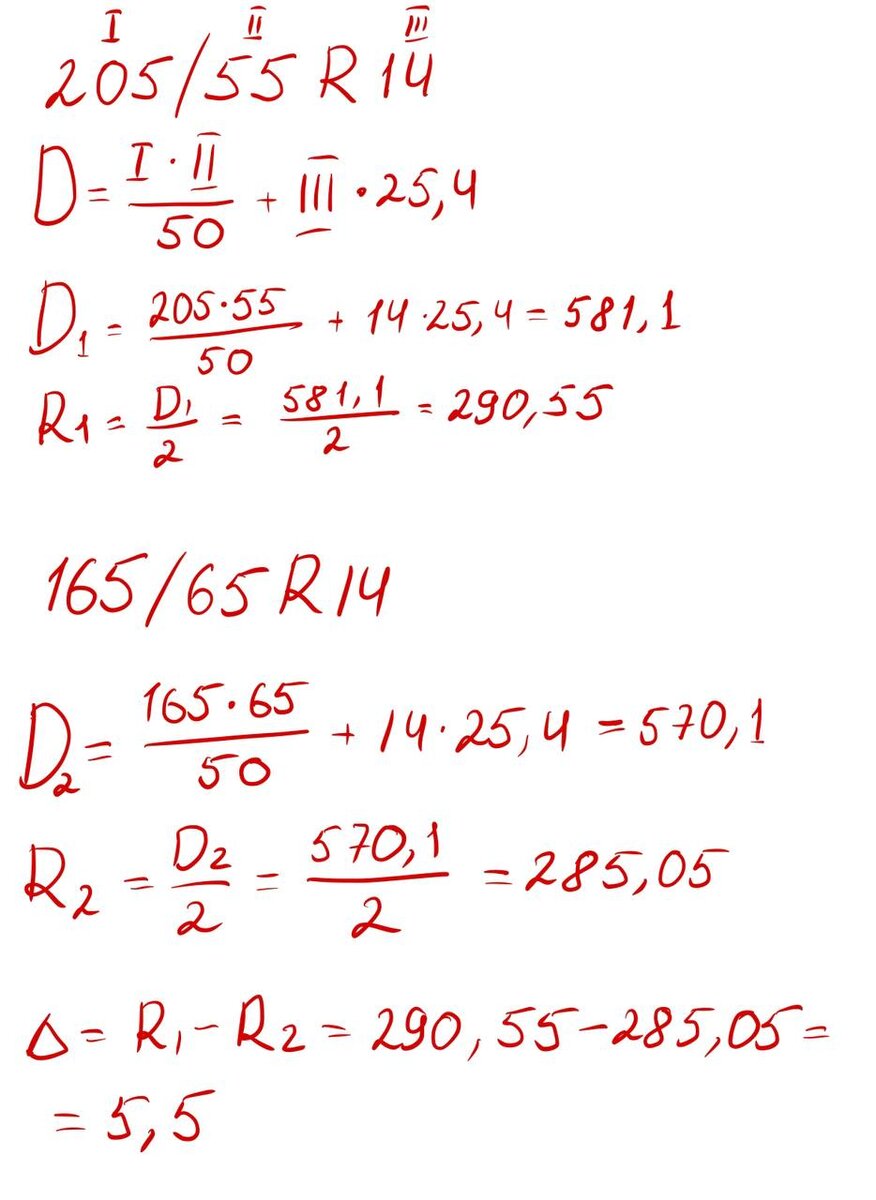 I II III
205/55 R 14
D = I · II / 50 + III · 25,4
D₁ = 205·55 / 50 + 14·25,4 = 581,1
R1 = D₁ / 2 = 581,1 / 2 = 290,55
165/65 R 14
D₂ = 165·65 / 50 + 14·25,4 = 570,1
R₂ = D₂ / 2 = 570,1 / 2 = 285,05
Δ = R₁ − R₂ = 290,55 − 285,05 =
= 5,5